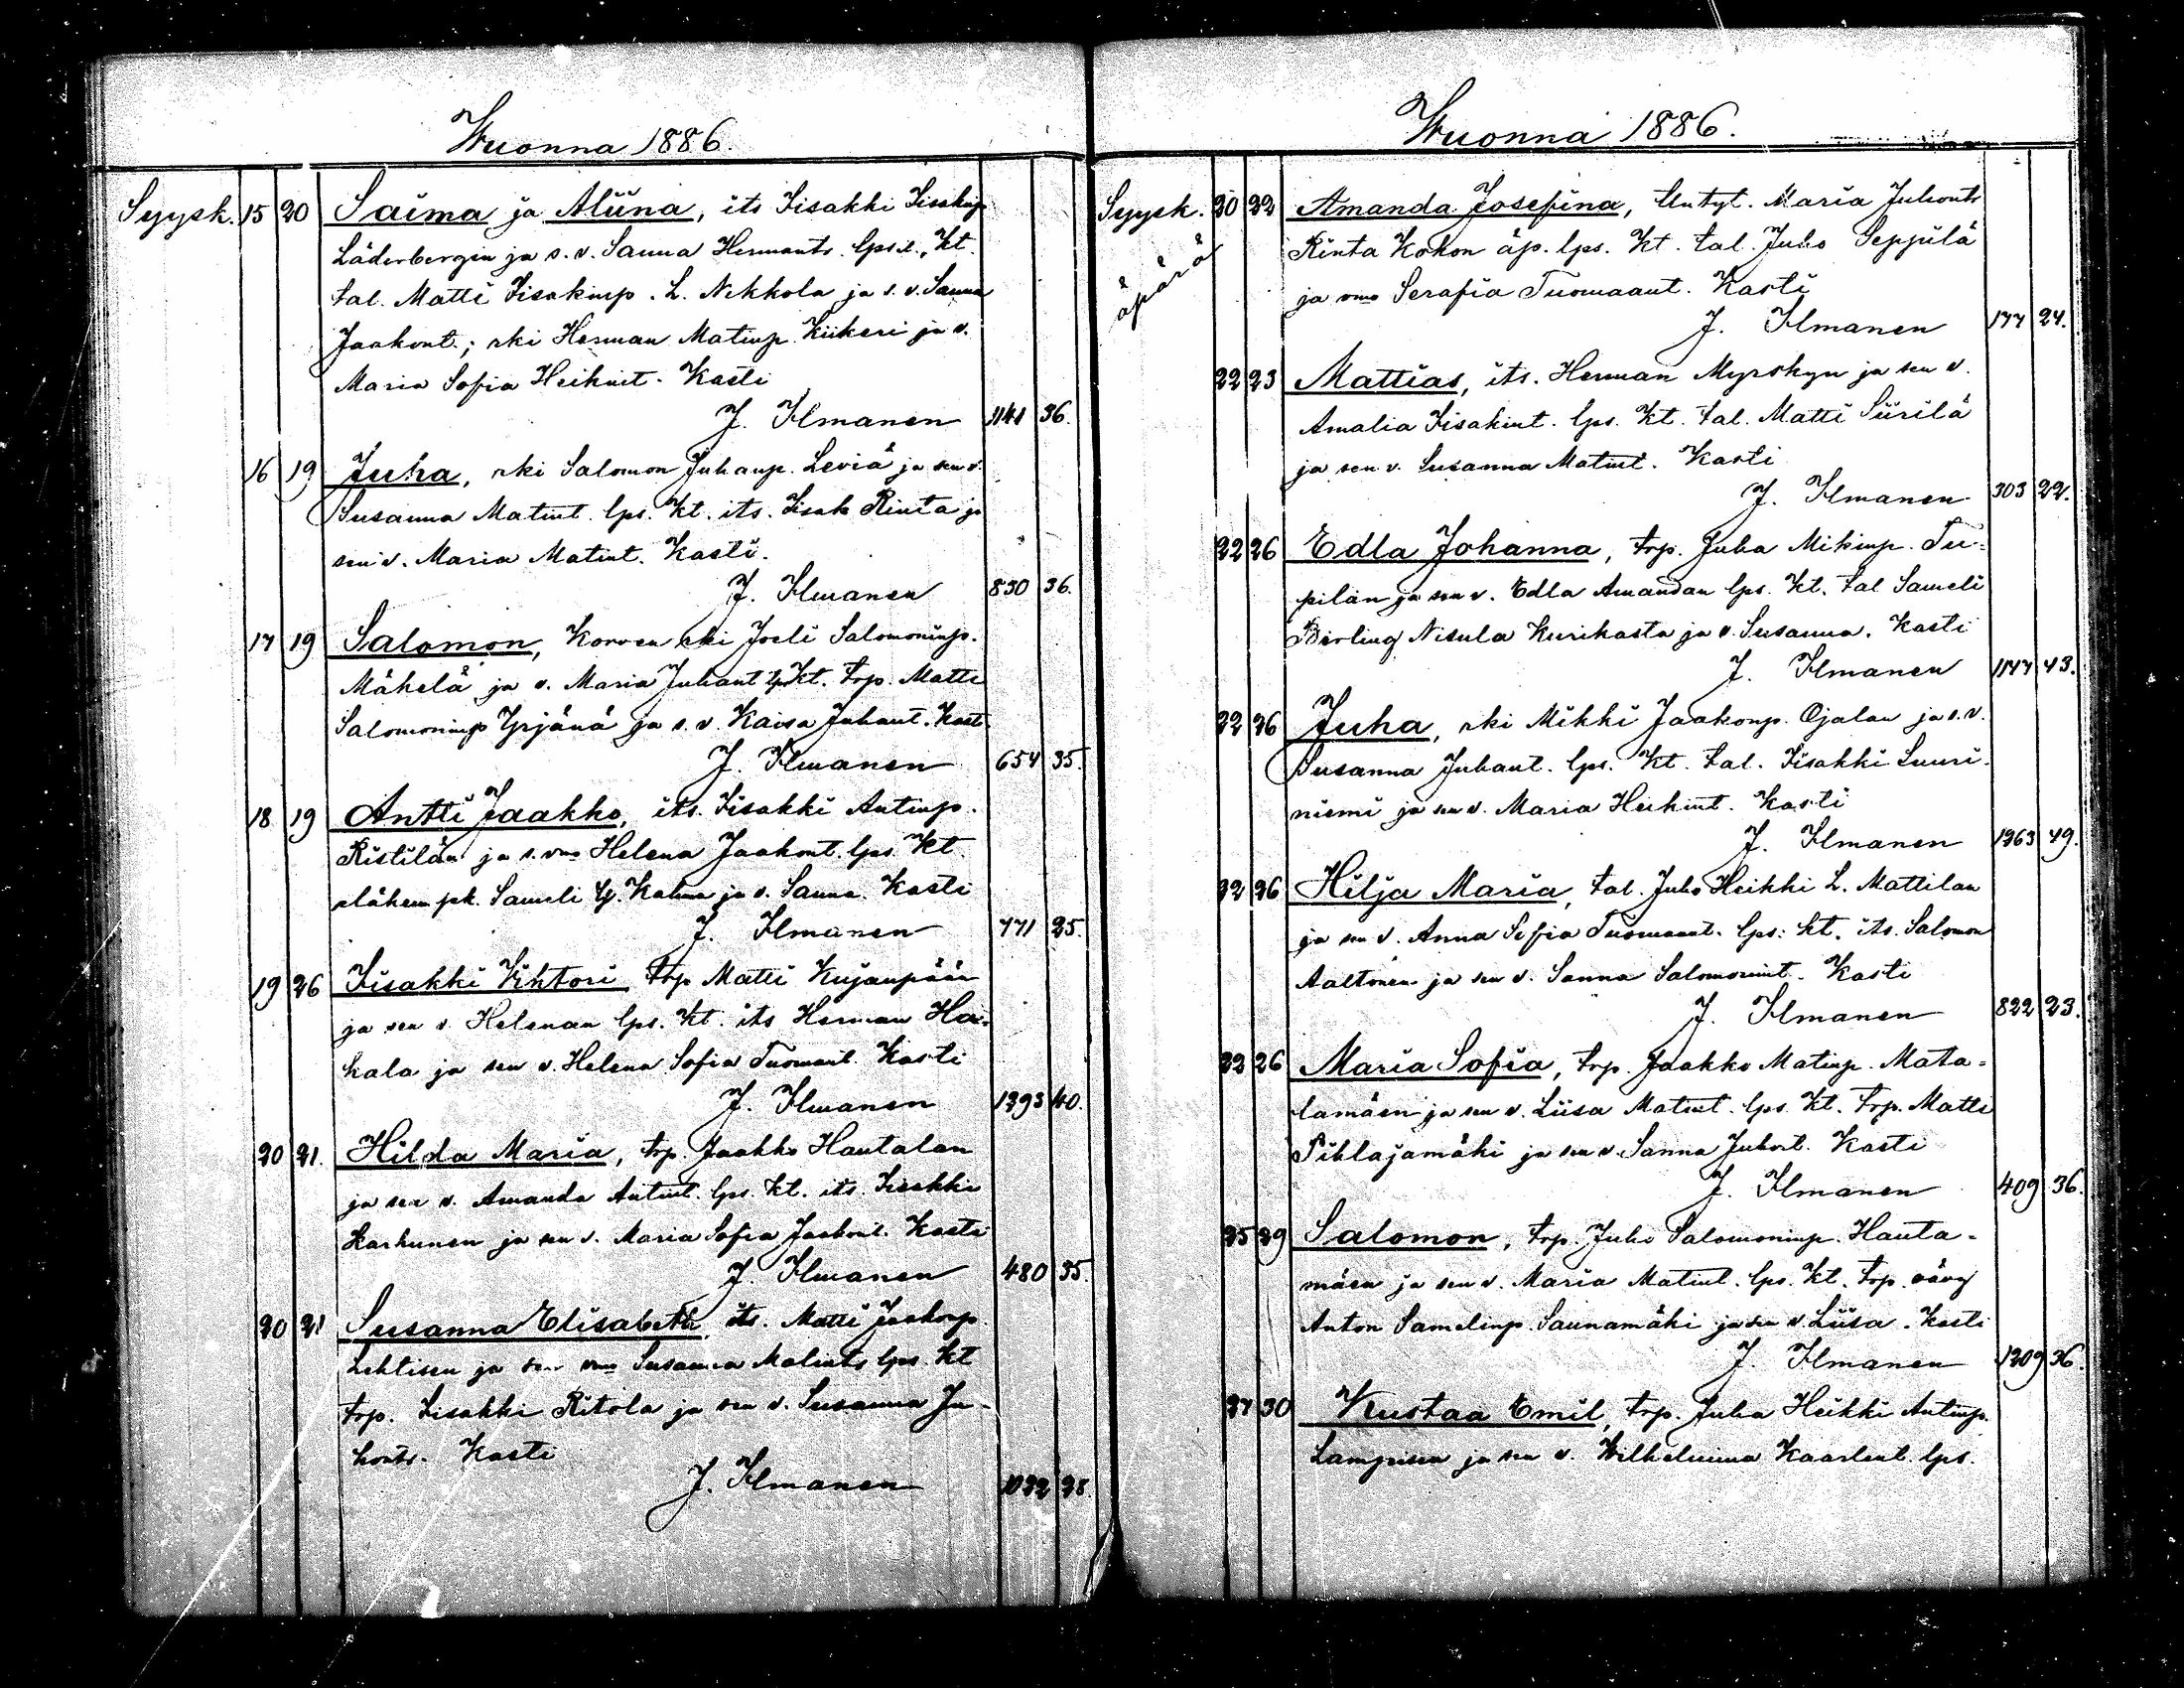 Wuonna 1886.
Syysk. 15 20 Saima ja Aliina, its Iisakki Iisakinp
Läderbergin ja s. v. Sanna Hermants. lps. Kt.
tal. Matti Iisakinp. L. Nikkola ja s. v. Sanna
Jaakont.; rki Herman Matinp. Kiikeri ja v.
Maria Sofia Heikint. Kasti
J. Ilmanen 1141 36.
16 19 Juha, rki Salomon Juhanp. Leviä ja sen v.
Susanna Matint. lps. Kt. its. Iisak Rinta ja
sen v. Maria Matint. Kasti.
J. Ilmanen 830 36.
17 19 Salomon, Korven rki Joeli Salomoninp.
Mäkelä ja v. Maria Juhant lps Kt. trp. Matti
Salomoninp Yrjänä ja s. v. Kaisa Juhant. Kasti
J. Ilmanen 654 35.
18 19 Antti Jaakko, its. Iisakki Antinp.
Ristilän ja s. vmo Helena Jaakont. lps. Kt.
pk. Sameli ja v. Sanna. Kasti
J. Ilmanen 771 25.
19 26 Iisakki Vihtori, trp Matti Kujanpään
ja sen v. Helenan lps. Kt. its Herman Ha-
kala ja sen v. Helena Sofia Tuomant. Kasti
J. Ilmanen 1393 40.
20 21. Hilda Maria, trp. Jaakko Hautalan
ja sen v. Amanda Antint. lps. Kt. its. Iisakki
Karhunen ja sen v. Maria Sofia Jaakont. Kasti
J. Ilmanen 480 35.
20 21 Susanna Elisabeth, its. Matti Jaakonp.
Lehtisen ja sen vmo Susanna Matints lps. Kt
trp. Iisakki Ritola ja sen v. Susanna Ju-
honts. Kasti
J. Ilmanen 1022 28.
Wuonna 1886.
Syysk. 20 22 Amanda Josefina, Maria Juhonts
äpärä
Rinta Kokon äp. lps. Kt. tal. Juho Seppilä
ja vmo Serafia Tuomaant. Kasti
J. Ilmanen 177 24.
22 23 Mattias, its. Herman Myrskyn ja sen v.
Amalia Iisakint. lps. Kt. tal. Matti Siirilä
ja sen v. Susanna Matint. Kasti
J. Ilmanen 303 22.
22 26 Edla Johanna, trp. Juha Mikinp. Tu-
pilan ja sen v. Edla Amandan lps. Kt. tal Sameli
Birling Nisula Kurikasta ja v. Susanna. Kasti
J. Ilmanen 1177 43.
22 26 Juha, rki Mikki Jaakonp. Ojalan ja s. v.
Susanna Juhant. lps. Kt. tal. Iisakki Luuri-
niemi ja sen v. Maria Heikint. Kasti
J. Ilmanen 1263 49.
22 26 Hilja Maria, tal. Juho Heikki L. Mattilan
ja sen v. Anna Sofia Tuomaant. lps: kt. its. Salomon
Aaltonen ja sen v. Sanna Salomonint. Kasti
J. Ilmanen 822 23.
22 26 Maria Sofia, trp. Jaakko Matinp. Mata-
lamäen ja sen v. Liisa Matint. lps. Kt. trp. Matti
Pihlajamäki ja sen v. Sanna Juhont. Kasti
J. Ilmanen 409 36.
25 29 Salomon, trp. Juho Salomoninp. Hauta-
mäen ja sen v. Maria Matint. lps. Kt. trp. vävy
Anton Samelinp. Saunamäki ja sen v. Liisa. Kasti
J. Ilmanen 1209 36.
27 30 Kustaa Emil, trp. Juha Heikki Antinp.
Lampisen ja sen v. Wilhelmina Kaarlent. lps.